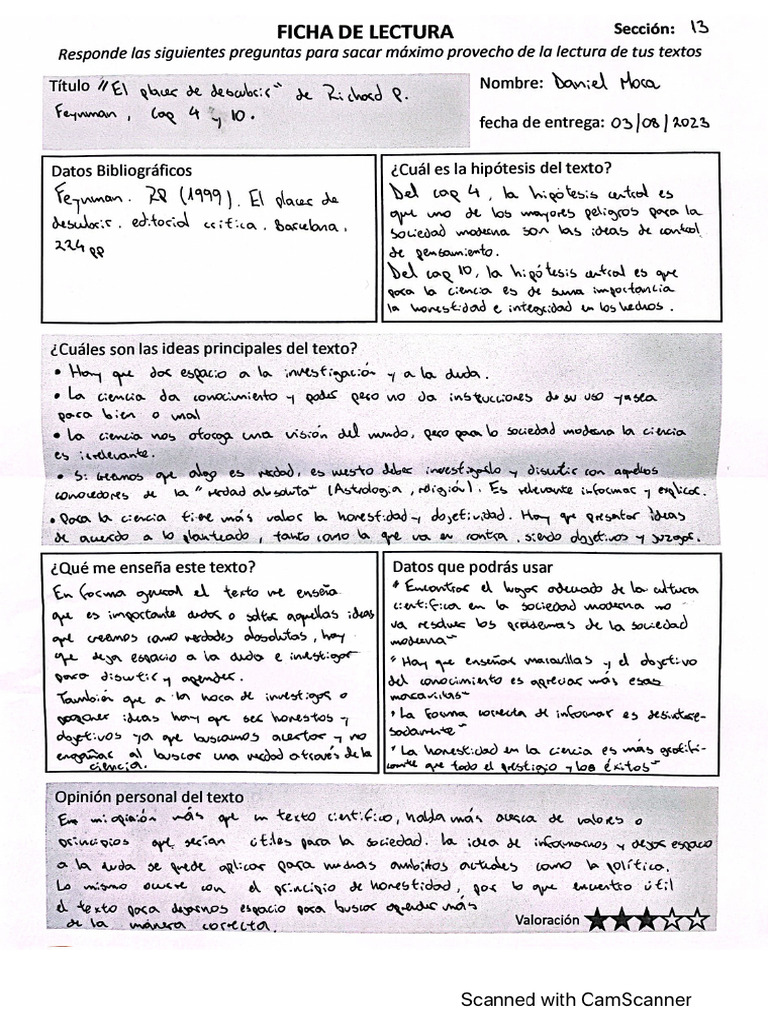 FICHA DE LECTURA
Sección: 13
Responde las siguientes preguntas para sacar máximo provecho de la lectura de tus textos
Título "El placer de descubrir" de Richard P.
Feynman, cap 4 y 10.
Nombre: Daniel Mora
fecha de entrega: 03/08/2023
Datos Bibliográficos
Feynman. RP (1999). El placer de
descubrir. editorial critica. Barcelona.
224 pp
¿Cuál es la hipótesis del texto?
Del cap 4, la hipótesis central es
que uno de los mayores peligros para la
sociedad moderna son las ideas de control
de pensamiento.
Del cap 10, la hipótesis central es que
para la ciencia es de suma importancia
la honestidad e integridad en los hechos.
¿Cuáles son las ideas principales del texto?
• Hay que dar espacio a la investigación y a la duda.
• La ciencia da conocimiento y poder pero no da instrucciones de su uso ya sea
para bien o mal
• La ciencia nos otorga una visión del mundo, pero para lo sociedad moderna la ciencia
es irrelevante.
• Si creemos que algo es verdad, es nuestro deber investigarlo y discutir con aquellos
conocedores de la "verdad absoluta" (Astrología, religión). Es relevante informar y explicar.
• Para la ciencia tiene más valor la honestidad y objetividad. Hay que presentar ideas
de acuerdo a lo planteado, tanto como la que va en contra, siendo objetivos y juzgar.
¿Qué me enseña este texto?
En forma general el texto me enseña
que es importante dudar o soltar aquellas ideas
que creemos como verdades absolutas, hay
que dejar espacio a la duda e investigar
para discutir y aprender.
También que a la hora de investigar o
proponer ideas hay que ser honestos y
objetivos ya que buscamos acertar y no
engañar al buscar una verdad a través de la
ciencia.
Datos que podrás usar
"Encontrar el lugar adecuado de la cultura
científica en la sociedad moderna no
va resolver los problemas de la sociedad
moderna"
"Hay que enseñar maravillas y el objetivo
del conocimiento es apreciar más esas
maravillas"
"La forma correcta de informar es desintere-
sadamente"
"La honestidad en la ciencia es más gratifi-
cante que todo el prestigio y los éxitos"
Opinión personal del texto
En mi opinión más que un texto científico, habla más acerca de valores o
principios que serían útiles para la sociedad. La idea de informarnos y dejar espacio
a la duda se puede aplicar para muchos ambitos actuales como la política.
Lo mismo ocurre con el principio de honestidad, por lo que encuentro útil
el texto para dejarnos espacio para buscar aprender más
de la manera correcta.
Valoración
Scanned with CamScanner